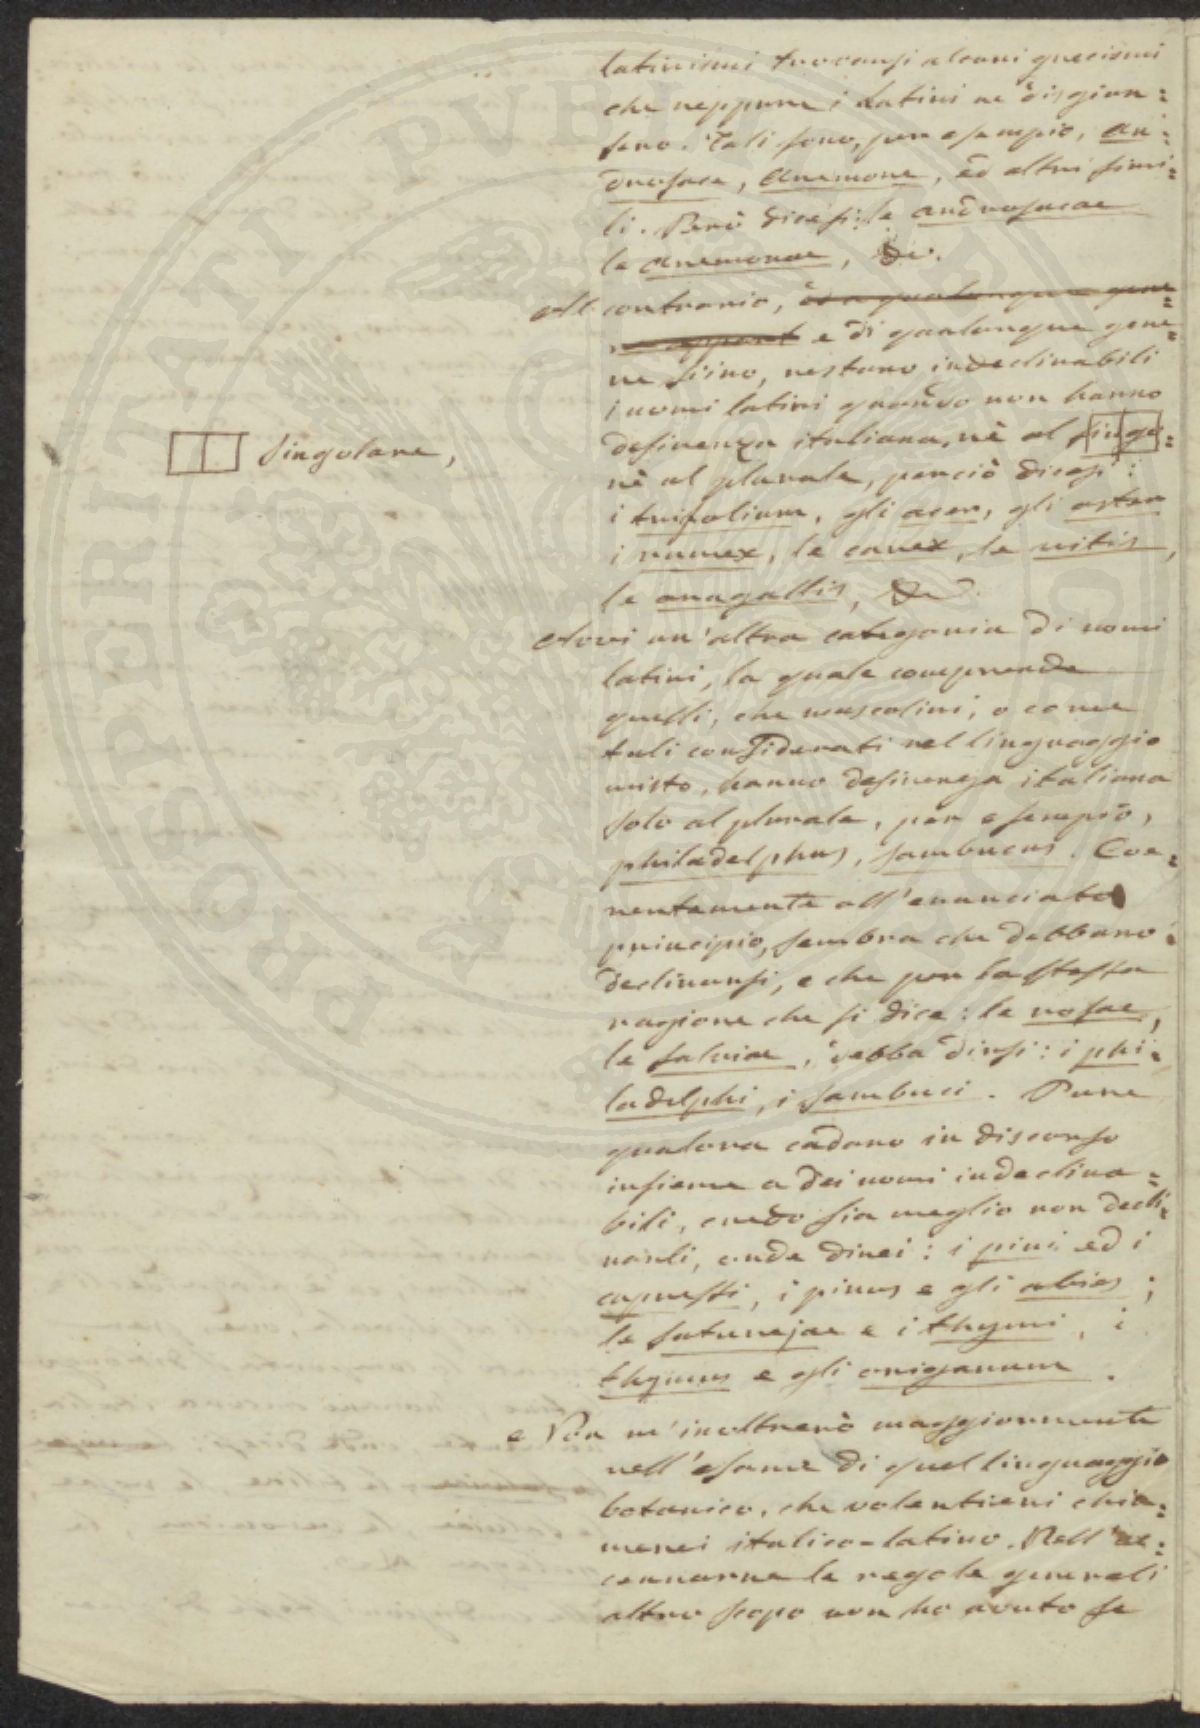 latinismi trovansi alcuni grecismi
che neppure i Latini ne disgiun=
sero. Tali sono, per esempio, an=
drosace, anemone, ed altri simi=
li. Però dicesi: le androsacae
le anemonae, &c.
Al contrario, ed a qualunque gene=
re appart e di qualunque gene=
re siino, restano indeclinabili
i nomi latini quando non hanno
desinenza italiana, nè al singo=
singolare,
nè al plurale, perciò dicesi:
i trifolium, gli acer, gli aster
i rumex, le carex, le vitis,
le anagallis, &c
Avvi un'altra categoria di nomi
latini, la quale comprende
quelli, che mascolini, o come
tali considerati nel linguaggio
misto, hanno desinenza italiana
solo al plurale, per esempio,
philadelphus, sambucus. Coe=
rentemente all'enunciato
principio, sembra che debbano
declinarsi, e che per la stessa
ragione che si dice: le rosae,
le salviae, debba dirsi: i phi=
ladelphi, i sambuci. Pure
qualora cadano in discorso
insieme a dei nomi indeclina=
bili, credo sia meglio non decli=
narli, onde direi: i pini ed i
cupressi, i pinus e gli abies;
le saturejae e i thymi, i
thymus e gli origanum.
e Non m'inoltrerò maggiormente
nell'esame di quel linguaggio
botanico, che volentieri chia=
merei italico-latino. Nell'ac=
cennarne le regole generali
altro scopo non ho avuto se
PROSPERITATI PVBLICAE